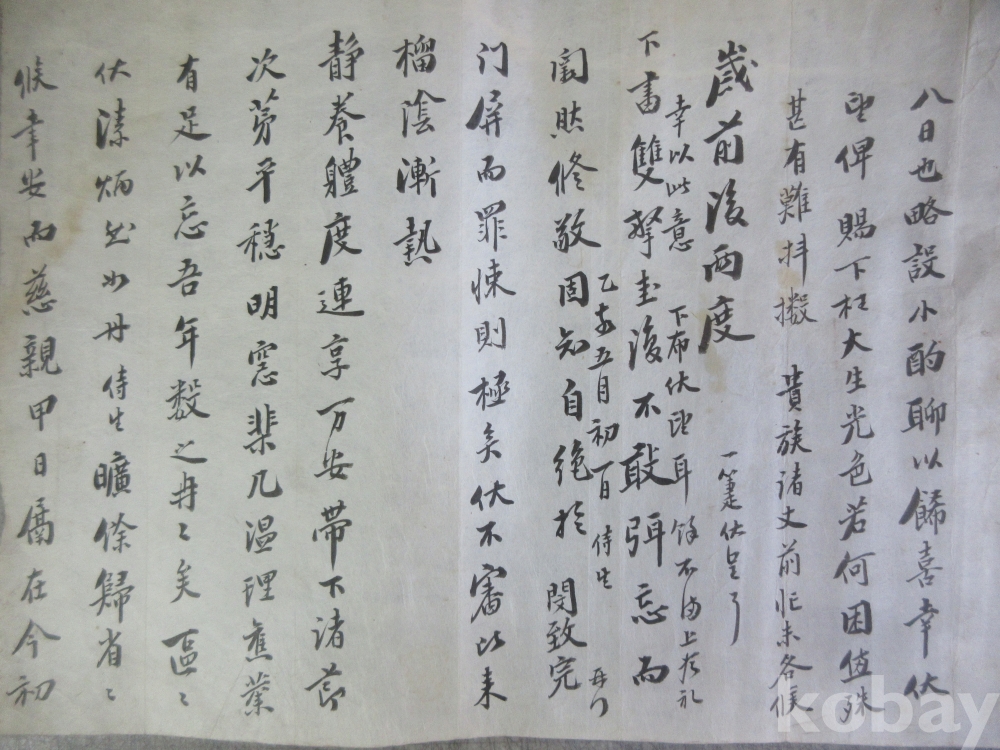 歲前後兩度
下書雙擎圭復不敢弭忘而
闇然修敬固知自絶於
门屏而罪悚則極矣伏不審比来
榴陰漸熱
靜養體度連享万安帶下諸節
次第平穩明窓棐几温理舊業
有足以忘吾年数之冉〻矣區〻
伏溸炳然如丹侍生曠餘歸省〻
候幸安而慈親甲日在今初
八日也略設小酌聊以餙喜幸伏
望俾賜下枉大生光色若何困值殊
甚有難抖擻貴族諸丈前忙未各候
幸以此意下布伏望耳餘不備上
乙亥五月初一日侍生閔致完再拜
一箑伏呈了
kobay